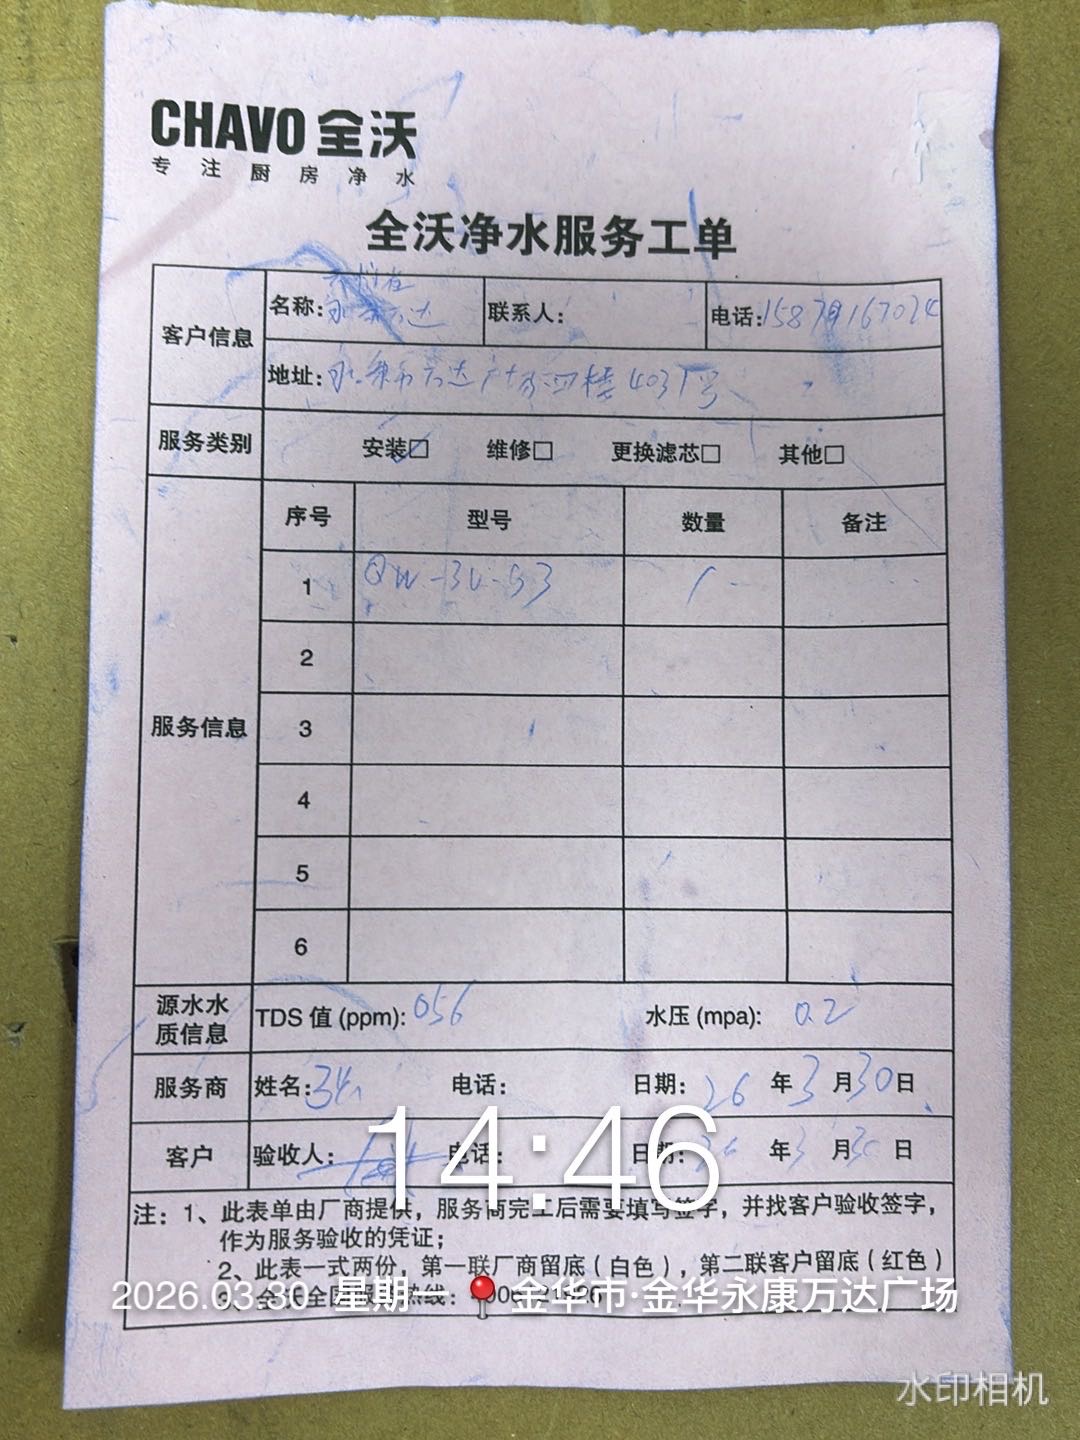 CHAVO 全沃
专注厨房净水
全沃净水服务工单
客户信息 名称: 联系人: 电话:
地址: 万达广场四楼
服务类别 安装☑ 维修□ 更换滤芯□ 其他□
服务信息 序号 型号 数量 备注
1 1
2
3
4
5
6
源水水质信息 TDS 值 (ppm): 056 水压 (mpa): 0.2
服务商 姓名: 电话: 日期: 26 年 3 月 30 日
客户 验收人: 电话: 日期: 年 3 月 30 日
14:46
注: 1、此表单由厂商提供，服务商完工后需要填写签字，并找客户验收签字，
作为服务验收的凭证；
2、此表一式两份，第一联厂商留底（白色），第二联客户留底（红色）
热线：
2026.03.30 星期 金华市·金华永康万达广场
水印相机